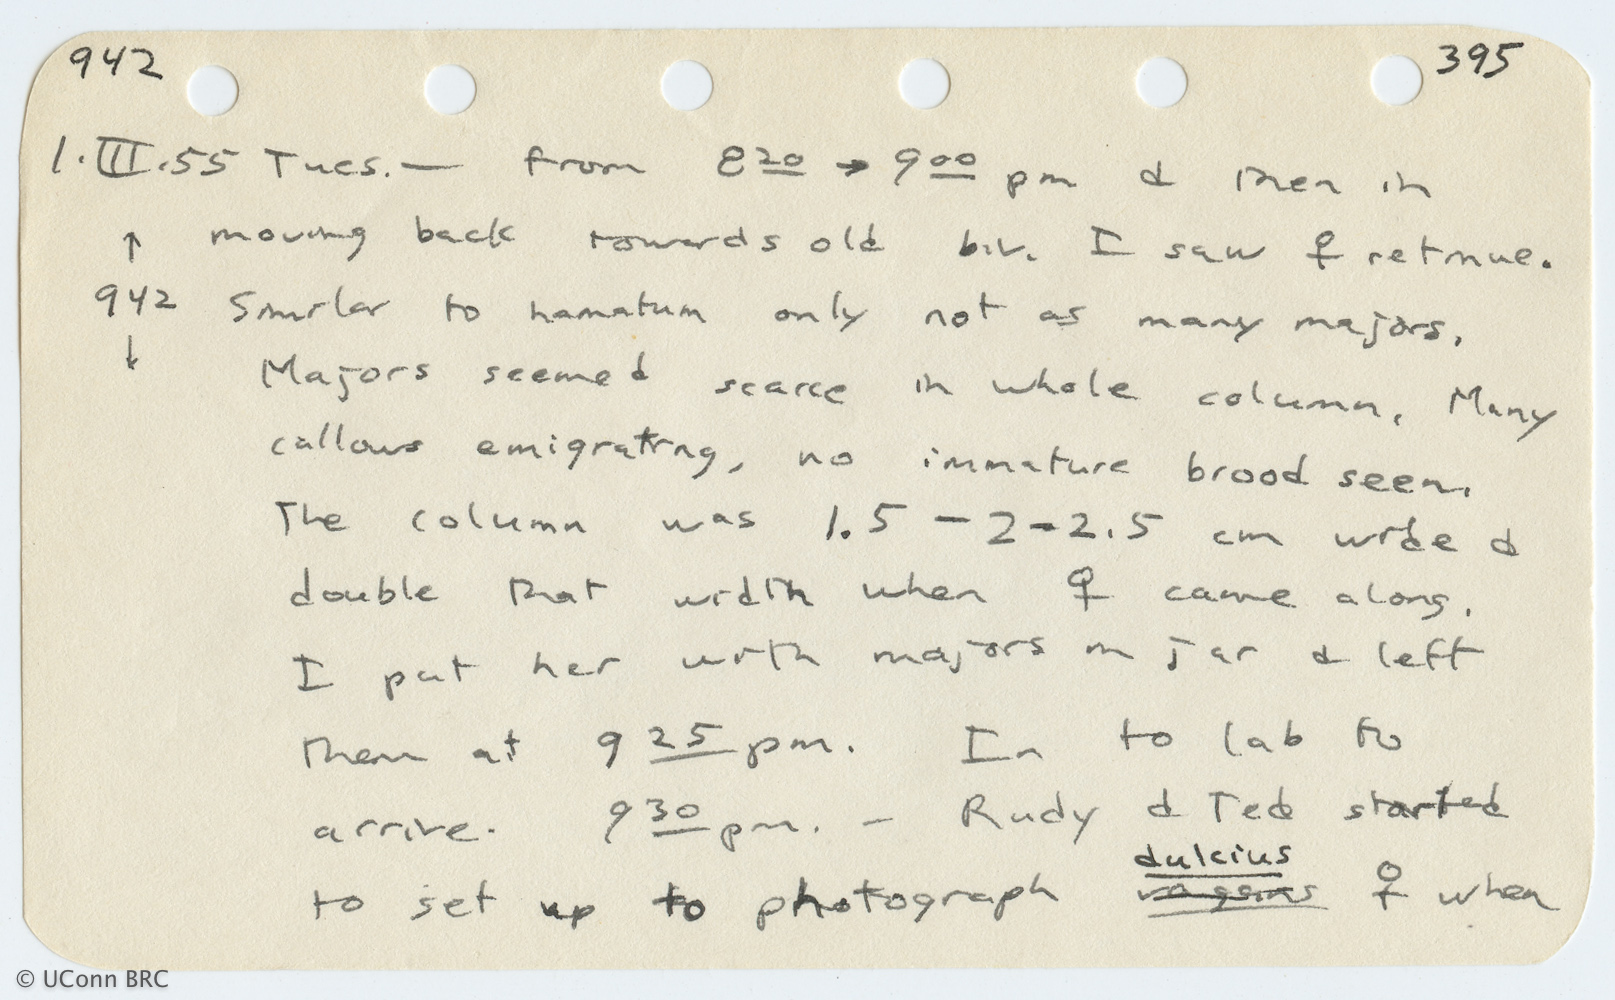 942 395
1.III.55 Tues. — From 8 20 → 9 00 pm & then in
↑ moving back towards old biv. I saw ♀ retinue.
942 Similar to hamatum only not as many majors.
↓ Majors seemed scarce in whole column. Many
callows emigrating, no immature brood seen.
The column was 1.5 - 2 - 2.5 cm wide &
double that width when ♀ came along.
I put her with majors in jar & left
them at 9 25 pm. In to lab to
arrive. 9 30 pm. - Rudy & Ted started
dulcius
to set up to photograph vagans ♀ when
© UConn BRC